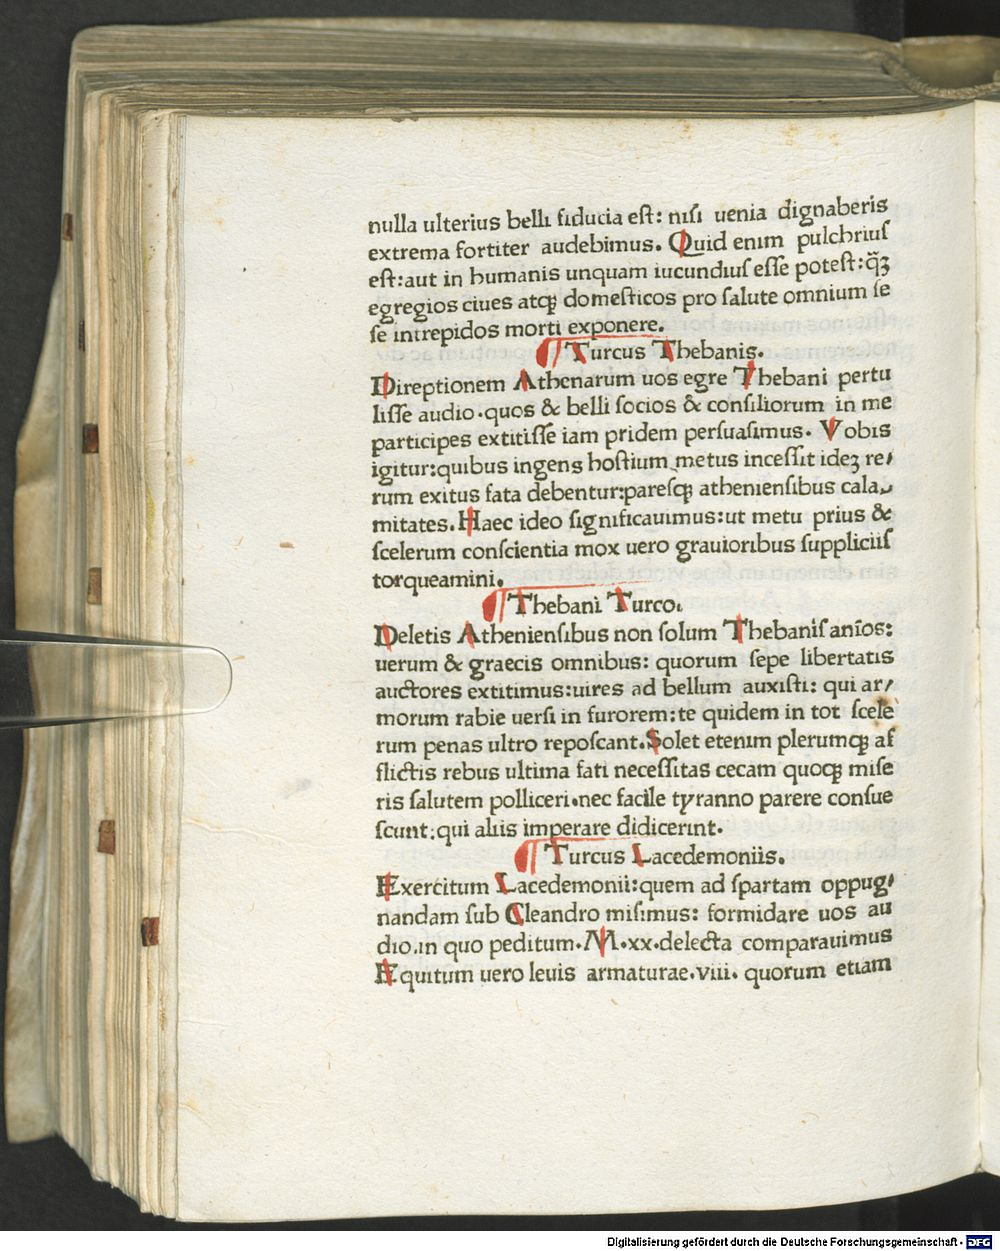 nulla ulterius belli fiducia eſt: niſi uenia dignaberis
extrema fortiter audebimus. Quid enim pulchriuſ
eſt:aut in humanis unquam iucundiuſ eſſe poteſt:q̃ꝫ
egregios ciues atqꝫ domeſticos pro ſalute omnium ſe
ſe intrepidos morti exponere.
¶ Turcus Thebanis.
Direptionem Athenarum uos egre Thebani pertu
liſſe audio.quos & belli ſocios & conſiliorum in me
participes extitiſſe iam pridem perſuaſimus. Vobis
igitur:quibus ingens hoſtium metus inceſſit ideꝫ re/
rum exitus fata debentur:pareſqꝫ athenienſibus cala/
mitates. Haec ideo ſignificauimus:ut metu prius &
ſcelerum conſcientia mox uero grauioribus ſuppliciiſ
torqueamini.
¶ Thebani Turco.
Deletis Athenienſibus non ſolum Thebaniſ anīos:
uerum & graecis omnibus: quorum ſepe libertatis
auctores extitimus:uires ad bellum auxiſti: qui ar/
morum rabie uerſi in furorem:te quidem in tot ſcele
rum penas ultro repoſcant.Solet etenim plerumqꝫ af
flictis rebus ultima fati neceſſitas cecam quoqꝫ miſe
ris ſalutem polliceri.nec facile tyranno parere conſue
ſcunt:qui aliis imperare didicerint.
¶ Turcus Lacedemoniis.
Exercitum Lacedemonii:quem ad ſpartam oppug/
nandam ſub Cleandro miſimus: formidare uos au
dio.in quo peditum.M.xx.delecta comparauimus
Equitum uero leuis armaturae.viii. quorum etiam
Digitalisierung gefördert durch die Deutsche Forschungsgemeinschaft - DFG